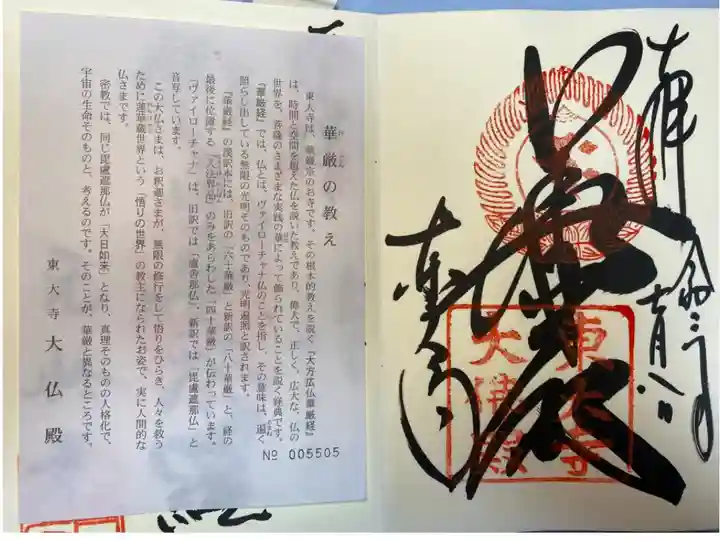 華厳の教え
けごん
東大寺は、華厳宗のお寺です。その根本的教えを説く『大方広仏華厳経』
は、時間と空間を超えた仏を説いた教えであり、偉大で、正しく、広大な、仏の
世界を、菩薩のさまざまな実践の華によって飾られていることを説く経典です。
『華厳経』では、仏とは、ヴァイローチャナ仏のことを指し、その意味は、遍く
照らし出している無限の光明そのものであり、光明遍照と訳されます。
『華厳経』の漢訳本には、旧訳の「六十華厳」と新訳の「八十華厳」と、経の
最後に位置する「入法界品」のみをあらわした「四十華厳」が伝わっています。
「ヴァイローチャナ」は、旧訳では「盧舎那仏」、新訳では「毘盧遮那仏」と
音写しています。
この大仏さまは、お釈迦さまが、無限の修行をして悟りをひらき、人々を救う
ために蓮華蔵世界という「悟りの世界」の教主になられたお姿で、実に人間的な
仏さまです。
密教では、同じ毘盧遮那仏が「大日如来」となり、真理そのものの人格化で、
宇宙の生命そのものと、考えるのです。そのことが、華厳と異なるところです。
東大寺 大仏殿
№ 005505
奉拝
令和三年
十一月八日
華厳
東大寺
東大寺
大佛殿